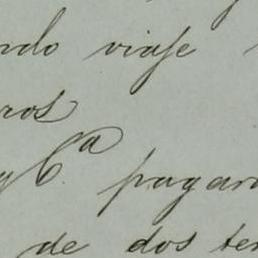 ndo viaje
ros
y Cª pagar
de dos ter